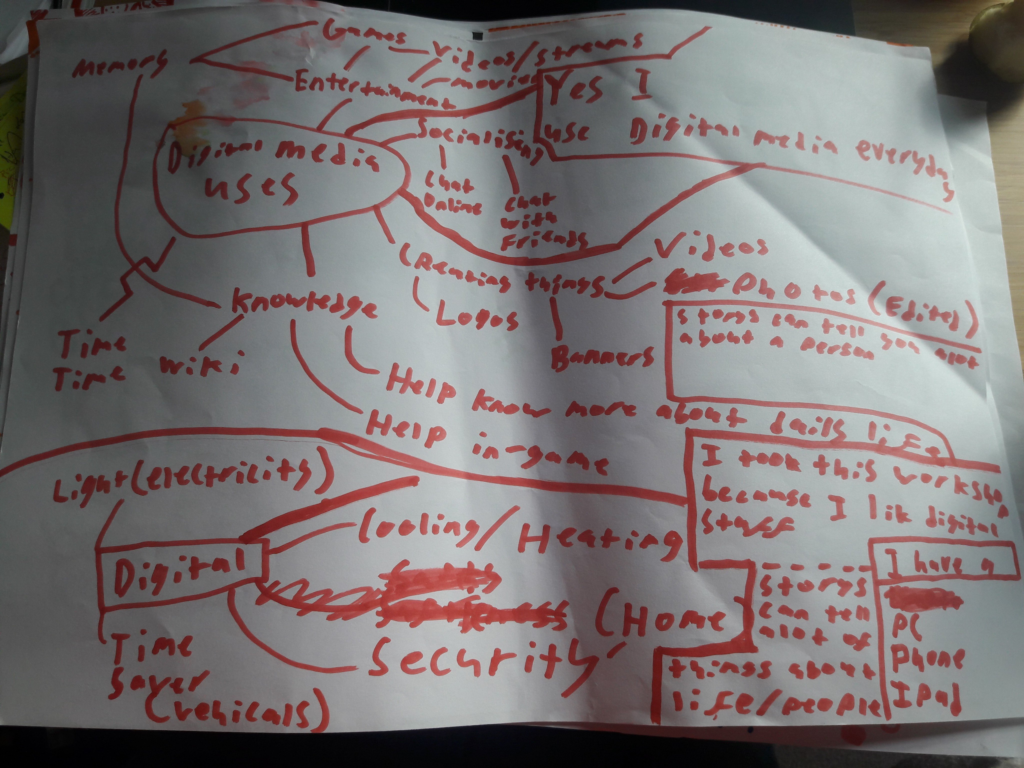 Games
Videos/streams
Memory
movies
Entertainment
Yes I
use Digital media everyday
Socialising
Digital media
uses
Chat
Online
Chat
with
Friends
Creating things
Videos
Photos (Edited)
Logos
Banners
Knowledge
Time
Time
wiki
storys can tell you alot
about a person
Help know more about daily life
Help in-game
Light (electricity)
I took this workshop
because I lik digital
stuff
Cooling/Heating
Digital
(Home
Security
Time
Saver
(vehicals)
storys
can tell
alot of
things about
life/people
I have a
PC
Phone
IPad